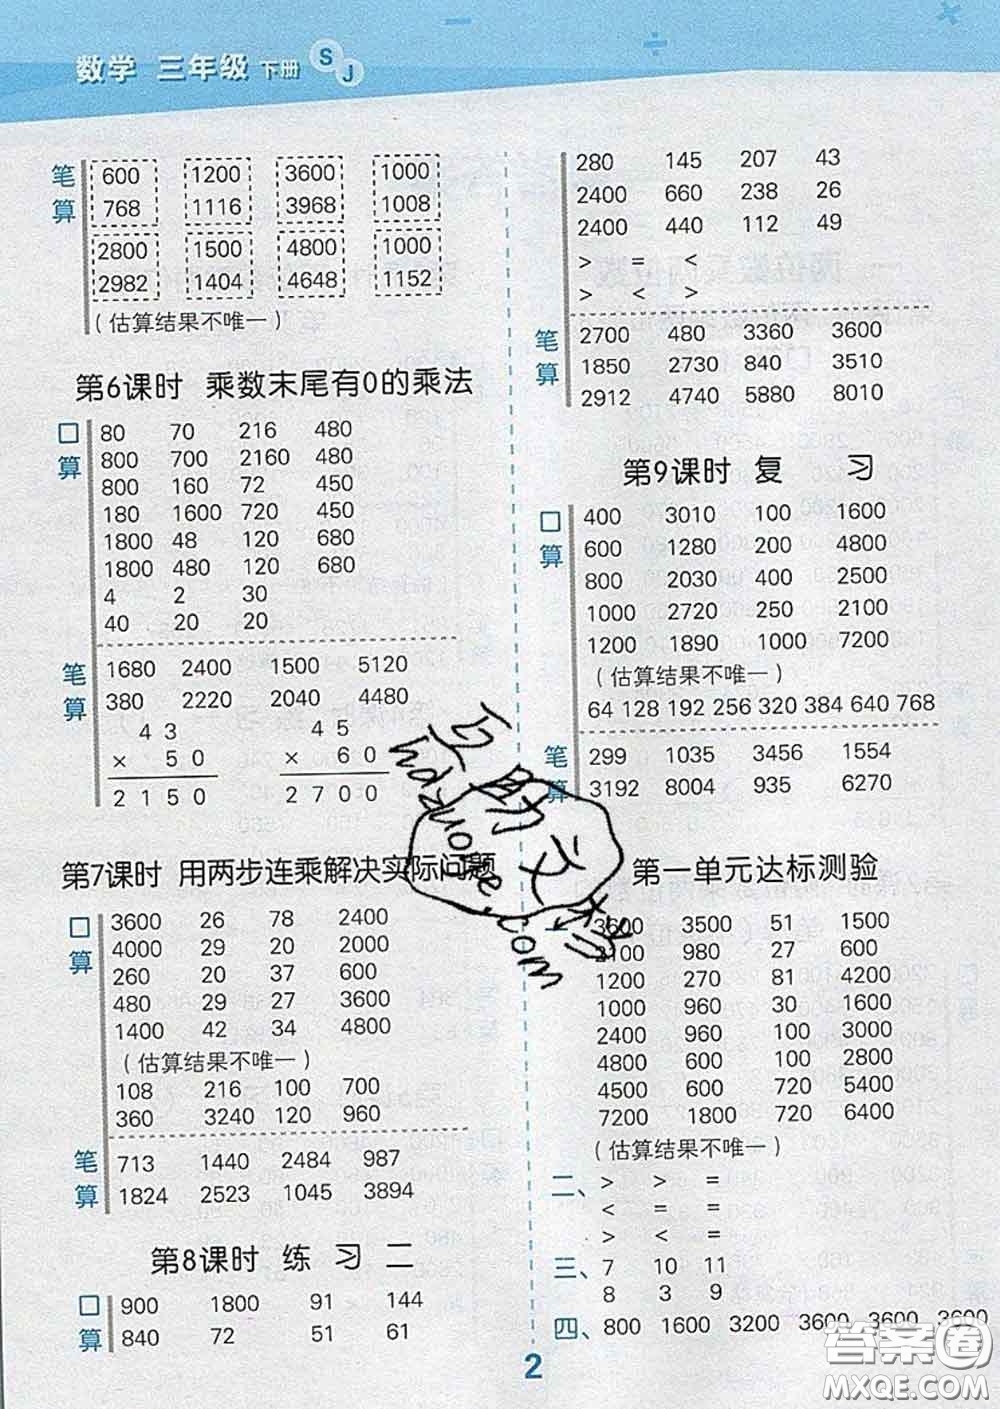 数学 三年级 下册 SJ
笔算
600 1200 3600 1000
768 1116 3968 1008
2800 1500 4800 1000
2982 1404 4648 1152
(估算结果不唯一)
第6课时 乘数末尾有0的乘法
口算
80 70 216 480
800 700 2160 480
800 160 72 450
180 1600 720 450
1800 48 120 680
1800 480 120 680
4 2 30
40 20 20
笔算
1680 2400 1500 5120
380 2220 2040 4480
4 3 4 5
× 5 0 × 6 0
2 1 5 0 2 7 0 0
第7课时 用两步连乘解决实际问题
口算
3600 26 78 2400
4000 29 20 2000
260 20 37 600
480 29 27 3600
1400 42 34 4800
(估算结果不唯一)
108 216 100 700
360 3240 120 960
笔算
713 1440 2484 987
1824 2523 1045 3894
第8课时 练 习 二
口算
900 1800 91 144
840 72 51 61
280 145 207 43
2400 660 238 26
2400 440 112 49
> = <
> < >
笔算
2700 480 3360 3600
1850 2730 840 3510
2912 4740 5880 8010
第9课时 复 习
口算
400 3010 100 1600
600 1280 200 4800
800 2030 400 2500
1000 2720 250 2100
1200 1890 1000 7200
(估算结果不唯一)
64 128 192 256 320 384 640 768
笔算
299 1035 3456 1554
3192 8004 935 6270
第一单元达标测验
3600 3500 51 1500
2100 980 27 600
1200 270 81 4200
1000 960 30 1600
2400 960 100 3000
4800 600 100 2800
4500 600 720 5400
7200 1800 720 6400
(估算结果不唯一)
二、 > > =
< = =
> < =
三、 7 10 11
8 3 9
四、 800 1600 3200 3600 3600 3600
2
答案圈
MXQE.COM